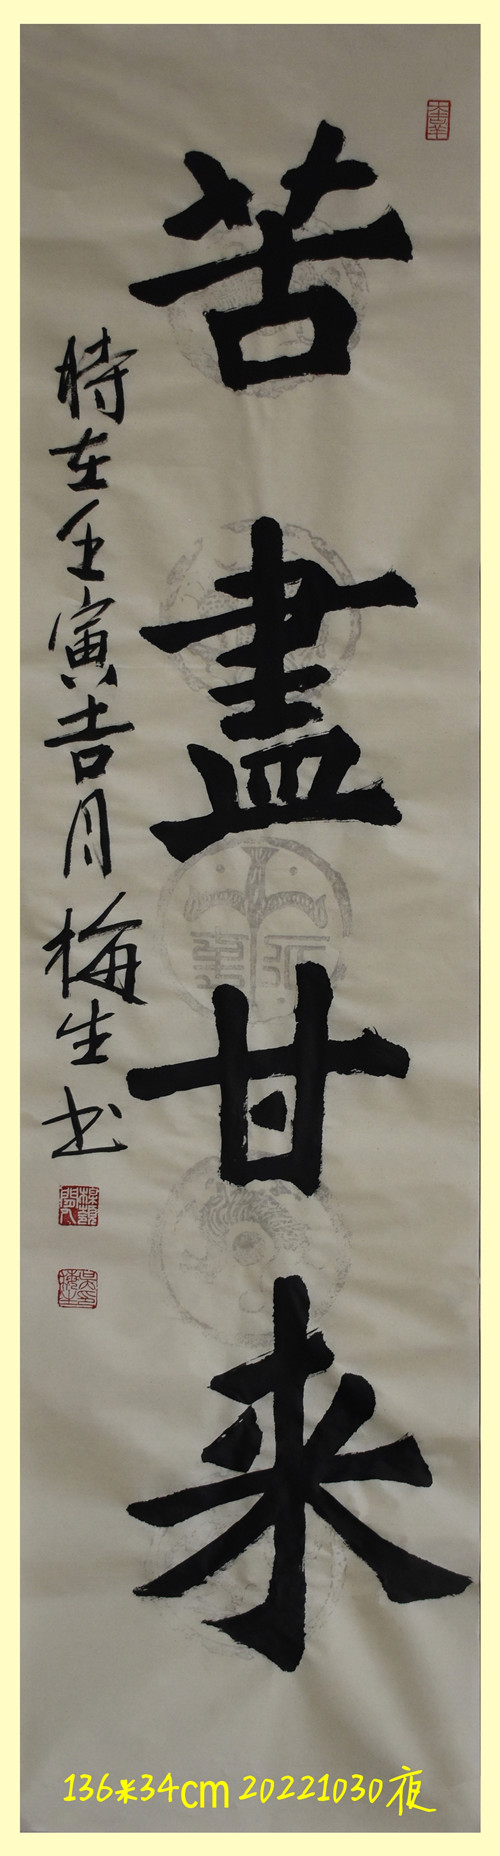 苦盡甘来
時在壬寅吉月梅生书
136*34cm 20221030夜